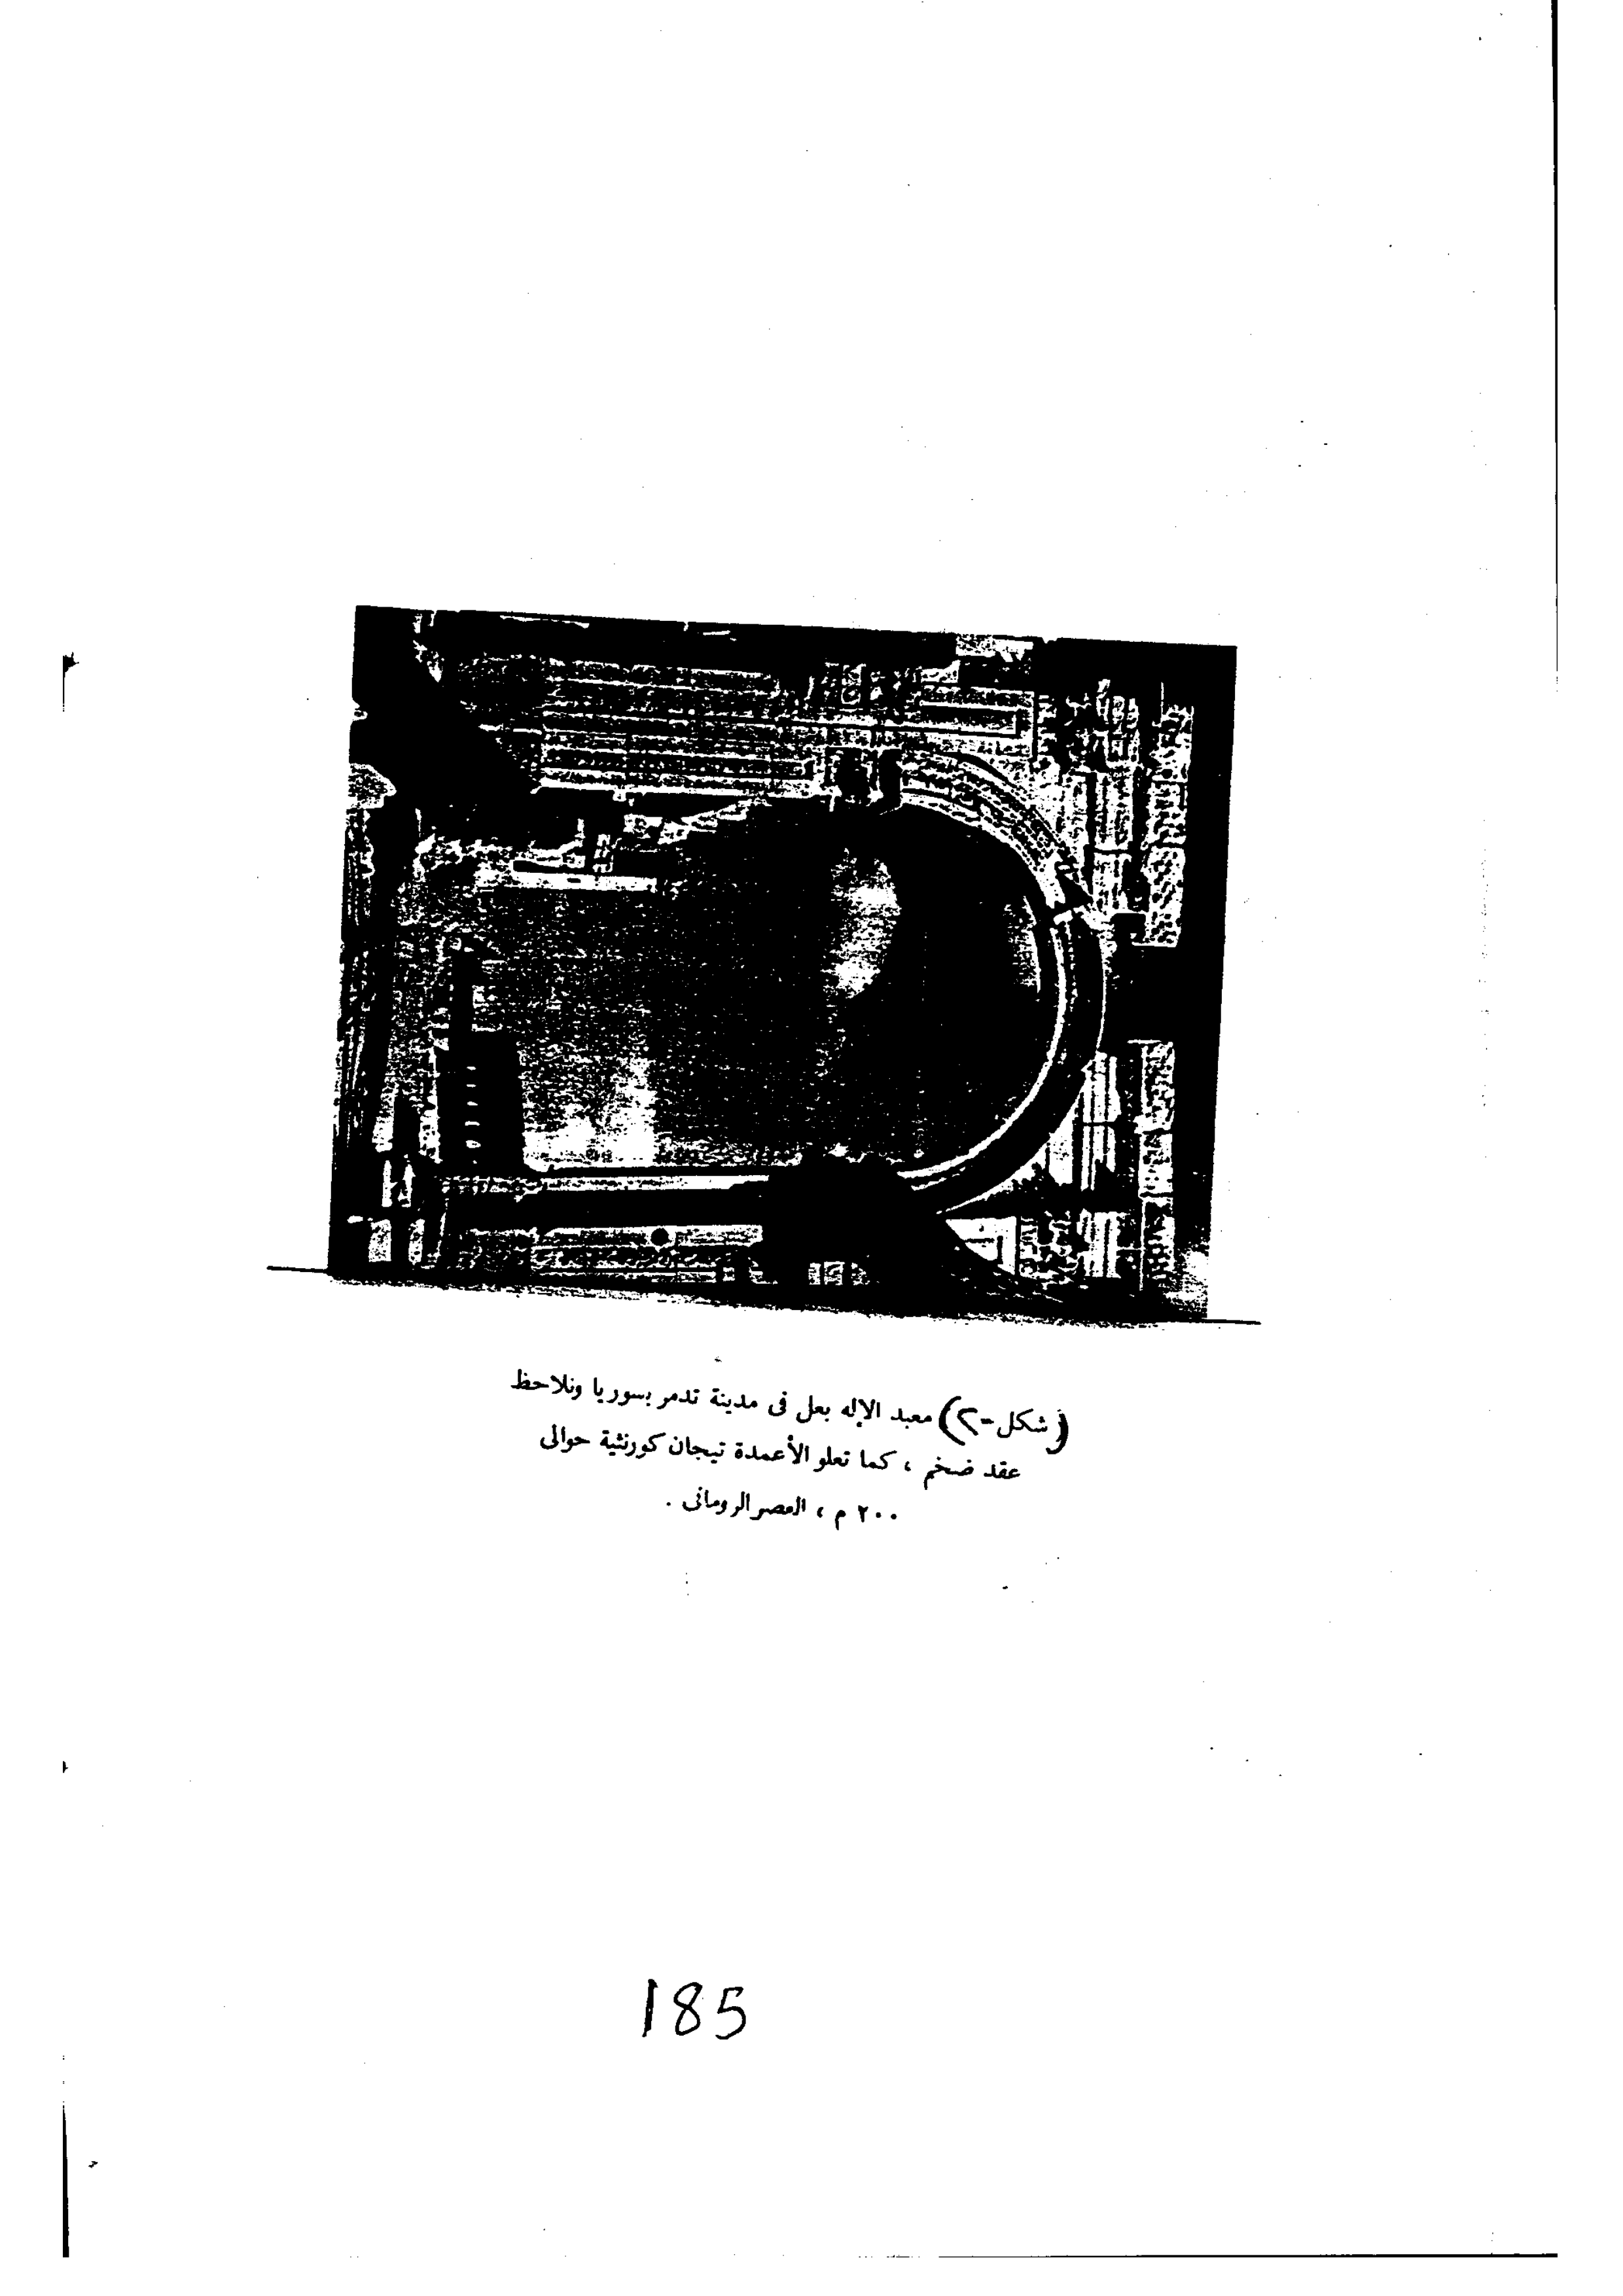 (شكل -٢) معبد الإله بعل فى مدينة تدمر بسوريا ونلاحظ
عقد ضخم ، كما تعلو الأعمدة تيجان كورنثية حوالى
٢٠٠ م ، العصر الرومانى .
185